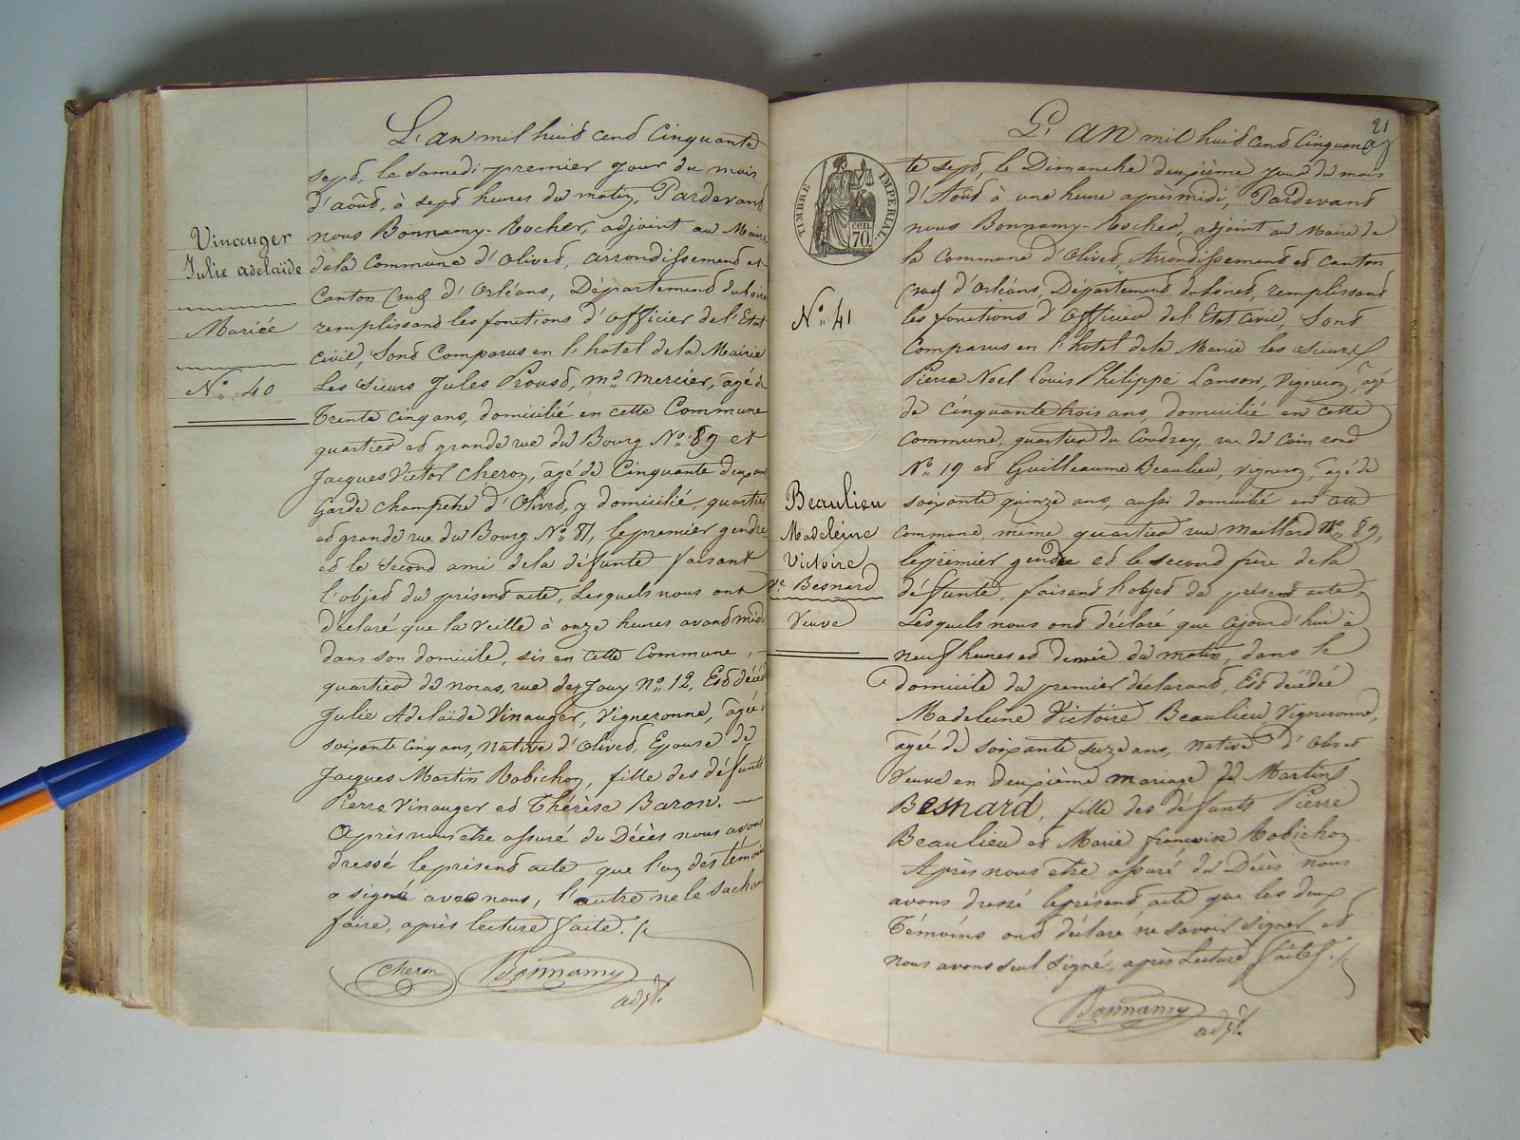 Vinauger
Julie adelaïde
Mariée
N.° 40
L'an mil huit cent Cinquante
sept, le samedi premier jour du mois
d'août, à sept heures du matin, Pardevant
nous Bonnamy-Rocher, adjoint au Maire
dela Commune d'Olivet, arrondissement et
Canton Sud d'Orléans, Département du Loiret
remplissant les fonctions d'officier de l'Etat
civil, Sont Comparus en l'hotel dela Mairie
Les Sieurs Jules Proust, md Mercier, âgé de
Trente cinq ans, domicilié en cette Commune
quartier et grande rue du Bourg N.° 89 et
Jacques Victor Cheron, âgé de Cinquante deux ans
Garde champetre d'Olivet, y domicilié, quartier
et grande rue du Bourg N.° 81, le premier gendre
et le Second ami dela défunte faisant
l'objet du présent acte, Lesquels nous ont
déclaré que la veille à onze heures avant midi
dans son domicile, sis en cette Commune,
quartier de noras, rue des Jouy N.° 12, Est décédée
Julie Adelaïde Vinauger, Vigneronne, âgée de
soixante cinq ans, native d'Olivet, Epouse de
Jacques Martin Robichon, fille des défunts
Pierre Vinauger et Thérèse Baron. —
Après nous etre assuré du Décès nous avons
dressé le présent acte que l'un des témoins
a signé avec nous, l'autre ne le sachant
faire, après lecture faite.
Cheron Bonnamy
adjt.
21
TIMBRE IMPERIAL
70
N.° 41
Beaulieu
Madeleine
Victoire
Ve Besnard
Veuve
L'an mil huit cent Cinquan
te sept, le Dimanche deuxième jour du mois
d'Août à une heure après midi, Pardevant
nous Bonnamy-Rocher, adjoint au Maire de
la Commune d'Olivet, Arrondissement et canton
Sud d'Orléans, Département du Loiret, remplissant
les fonctions d'officier del'Etat Civil, Sont
Comparus en l'hotel dela Mairie les Sieurs
Pierre Noel Louis Philippe Lanson, Vigneron, âgé
de Cinquante trois ans, domicilié en cette
Commune, quartier du Coudray, rue du Coin rond
N.° 19 et Guilleaume Beaulieu, vigneron, âgé de
soixante quinze ans, aussi domicilié en cette
commune, même quartier rue Maillard N.° 89,
le premier gendre et le second frère dela
défunte, faisant l'objet du présent acte,
Lesquels nous ont déclaré que aujourd'hui à
neuf heures et demie du matin, dans le
domicile du premier déclarant, Est décédée
Madeleine Victoire Beaulieu, Vigneronne,
âgée de soixante seize ans, native d'Olivet
Veuve en deuxième mariage de Martin
Besnard, fille des défunts Pierre
Beaulieu et Marie françoise Robichon.
Après nous etre assuré du Décès nous
avons dressé le présent acte que les deux
Témoins ont déclaré ne savoir signer et
nous avons seul signé, après Lecture faite.
Bonnamy
adjt.